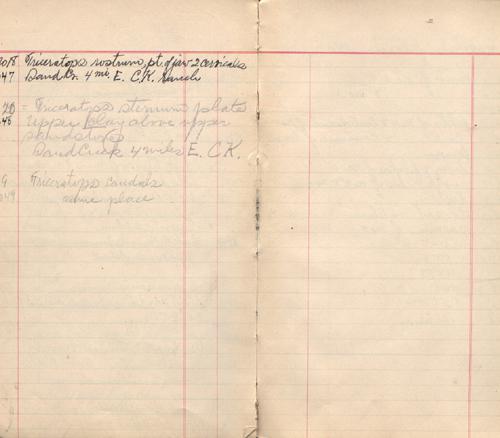 Triceratops rostrum, pt. of jaw 2 cervicals
47 Sand Cr. 4 mi. E. C.K. Ranch
20 = Triceratops sternum plate
48 Upper clay above upper
sandstone
Sand Creek 4 miles E. C.K.
9 Triceratops caudals
49 same place